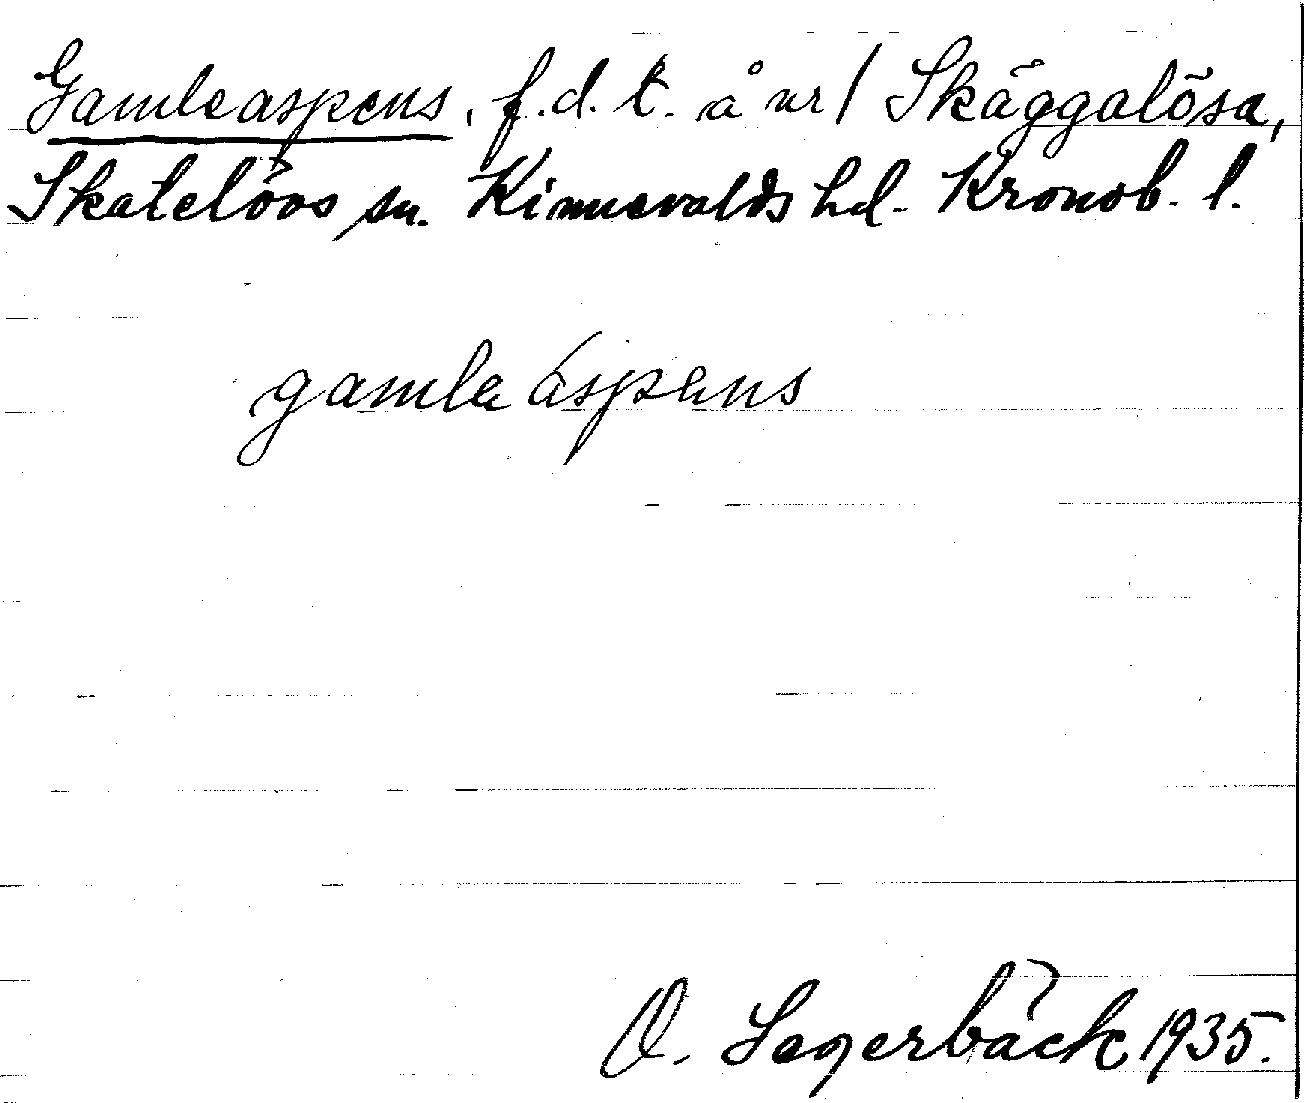 Gamleaspens, f.d.t. å nr 1 Skäggalösa,
Skatelövs sn. Kinnevalds hd. Kronob. l.
gamla áspens
O. Segerbäck 1935.